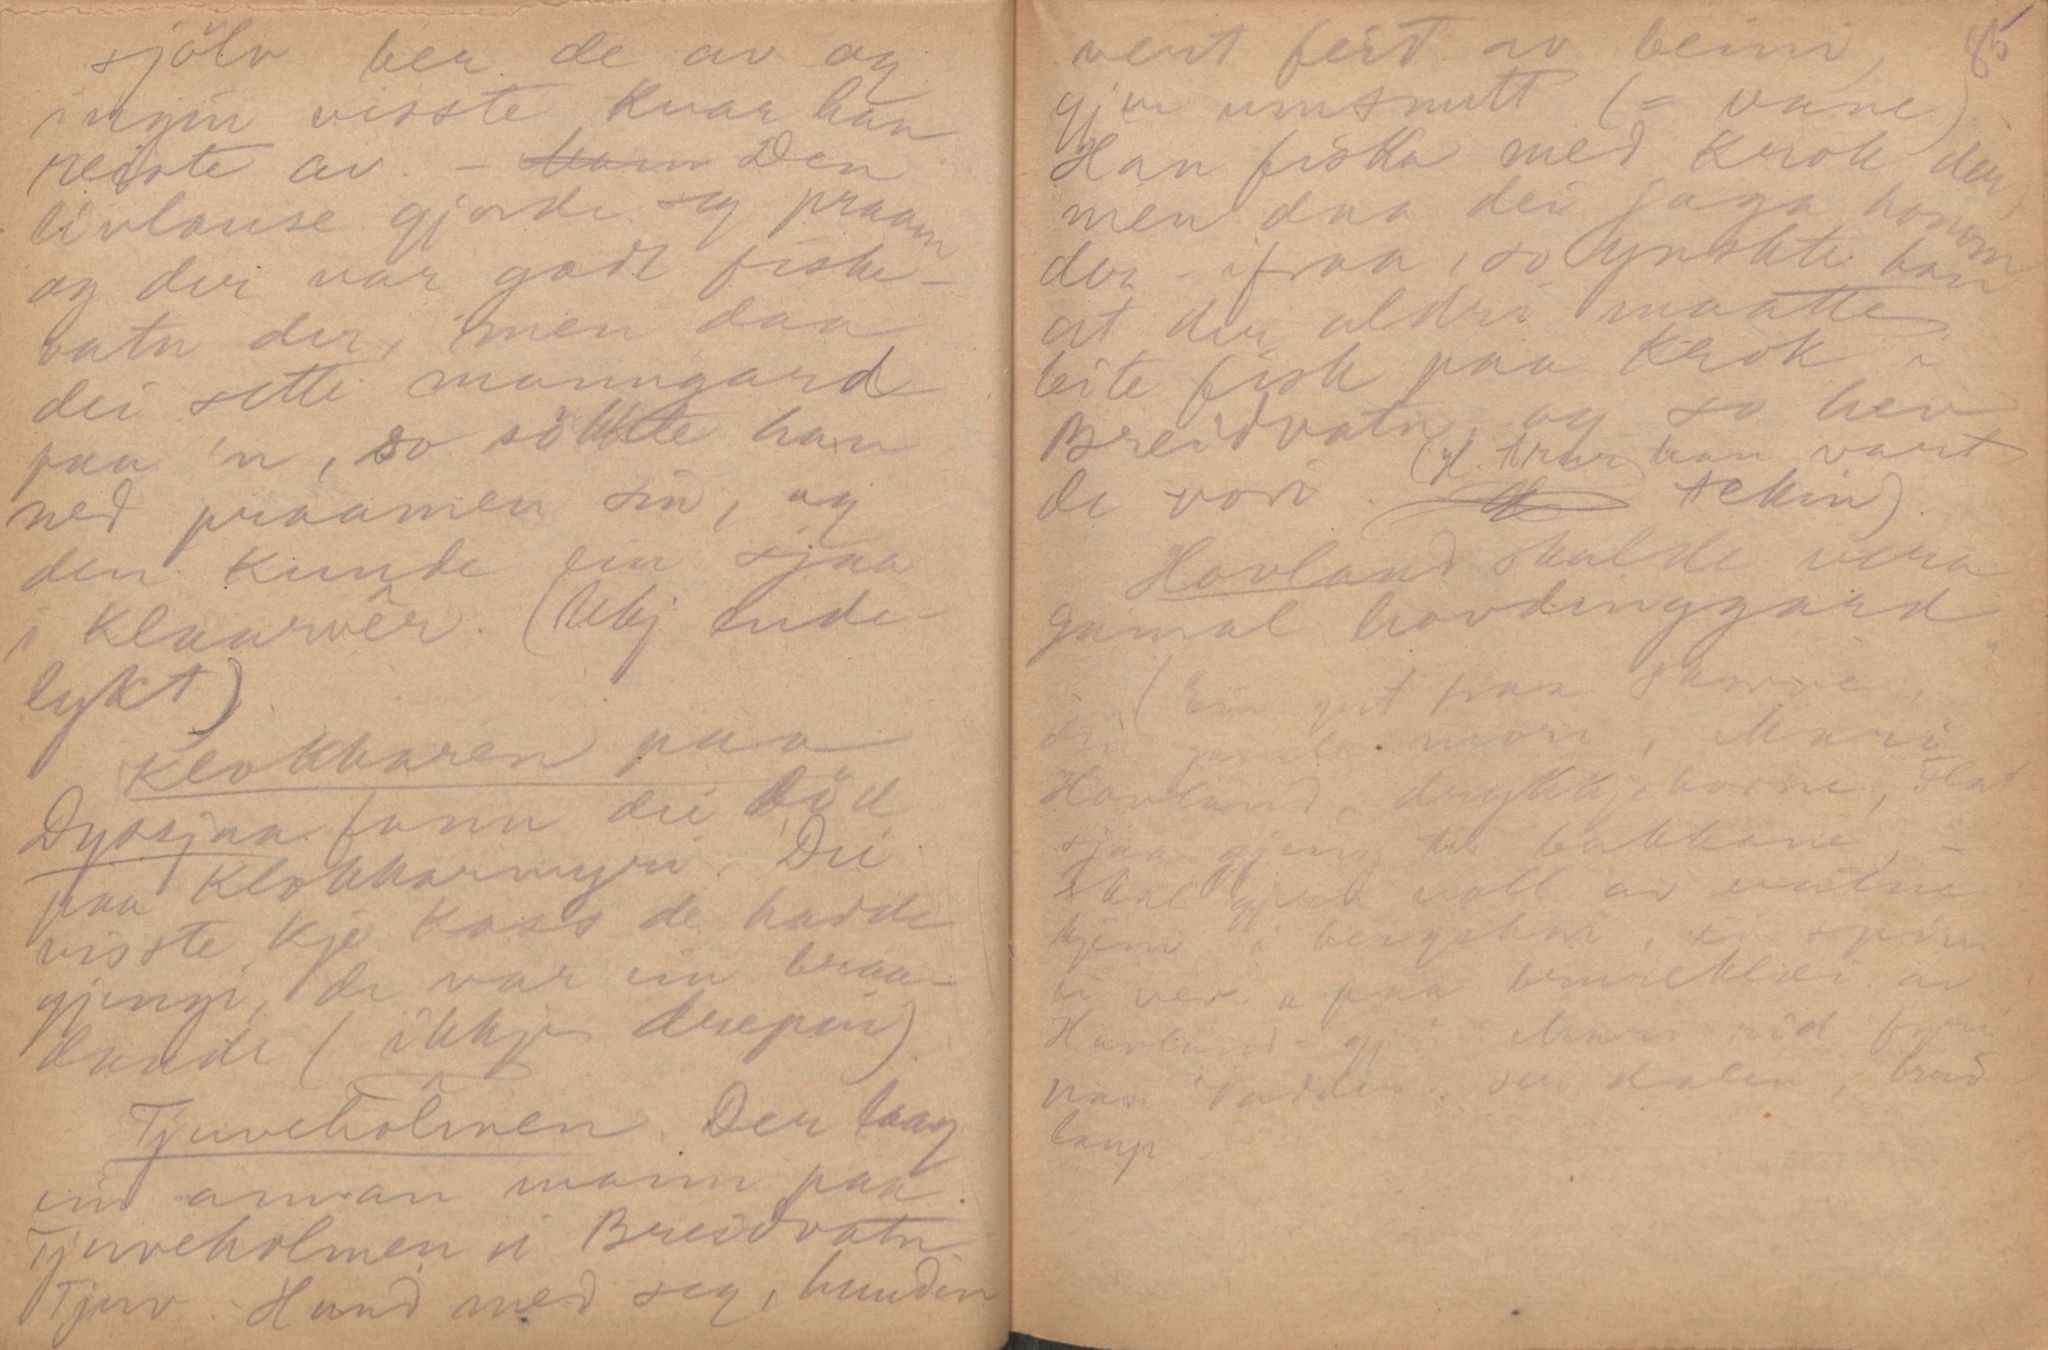 sjölv ber de av og
ingin visste kvar han
reiste av. – Den
livlause gjorde seg praam
og der var godt fiske-
vatn der, men daa
dei sette manngard
paa 'n, so sökkte han
ned praamen sin, og
den kunde ein sjaa
i klaarvêr. (Ukj ende-
lykt)
Klokkaren paa
Dyrsjaa fann dei död
paa Klokkarmyri. Dei
visste kje koss de hadde
gjengi, de var ein braa-
daude (ikkje drepin).
Tjuveholmen. Der laag
ein annan mann paa
Tjuveholmen i Breidvatn
Tjuv. Hund med seg, hundin
85
vent feit av beini,
gjer umsnitt (= vane)
Han fiska med krok der,
men daa dei jaga honom
der-ifraa, so ynskte han
at der aldri maatte
bite fisk paa krok i
Breidvatn, og so hev
de vori. (trur han vart
tekin).
Hovland skulde vera
gamal hovdinggard
(Ein gut paa
den gamle mori, Mari
Hovland, drykkjehorne,
sjaa gjeng til bakkane, –
Skal voll av vatne
kjem i
ei ver paa av
Hovland – Mari rid fyri
dalen, brud
laup